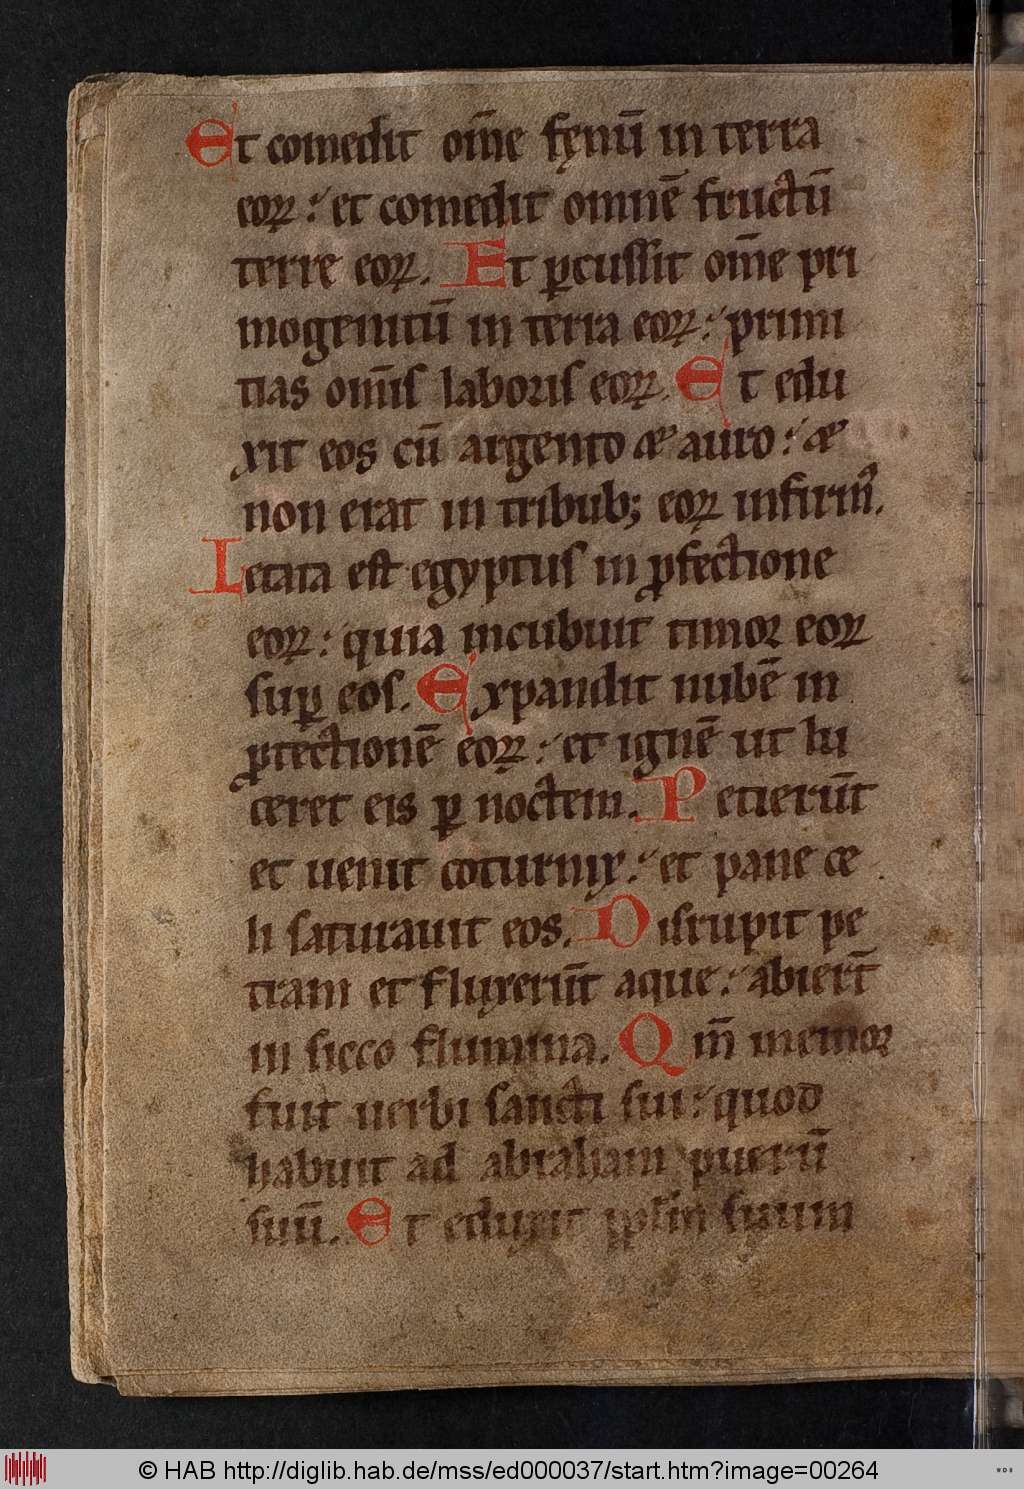 Et comedit om̄e fęnū in terra
eoꝝ : et comedit omnē fructū
terre eoꝝ. Et ꝑcussit om̄e pri
mogenitū in terra eoꝝ : primi
tias om̄is laboris eoꝝ. Et edu
xit eos cū argento æ auro : æ
non erat in tribub; eoꝝ infirmꝰ.
Letata est egyptus in ꝓfectione
eoꝝ : quia incubuit timor eoꝝ
suꝑ eos. Expandit nubē in
ꝓtectionē eoꝝ : et ignē ut lu
ceret eis ꝑ noctem. Petierūt
et uenit coturnix : et pane ce
li saturauit eos. Disrupit pe
tram et fluxerūt aque : abierт̄
in sicco flumina. Qm̄ memor
fuit uerbi sancti sui : quod
habuit ad abraham puerū
suū. Et eduxit pplm̄ suum
© HAB http://diglib.hab.de/mss/ed000037/start.htm?image=00264